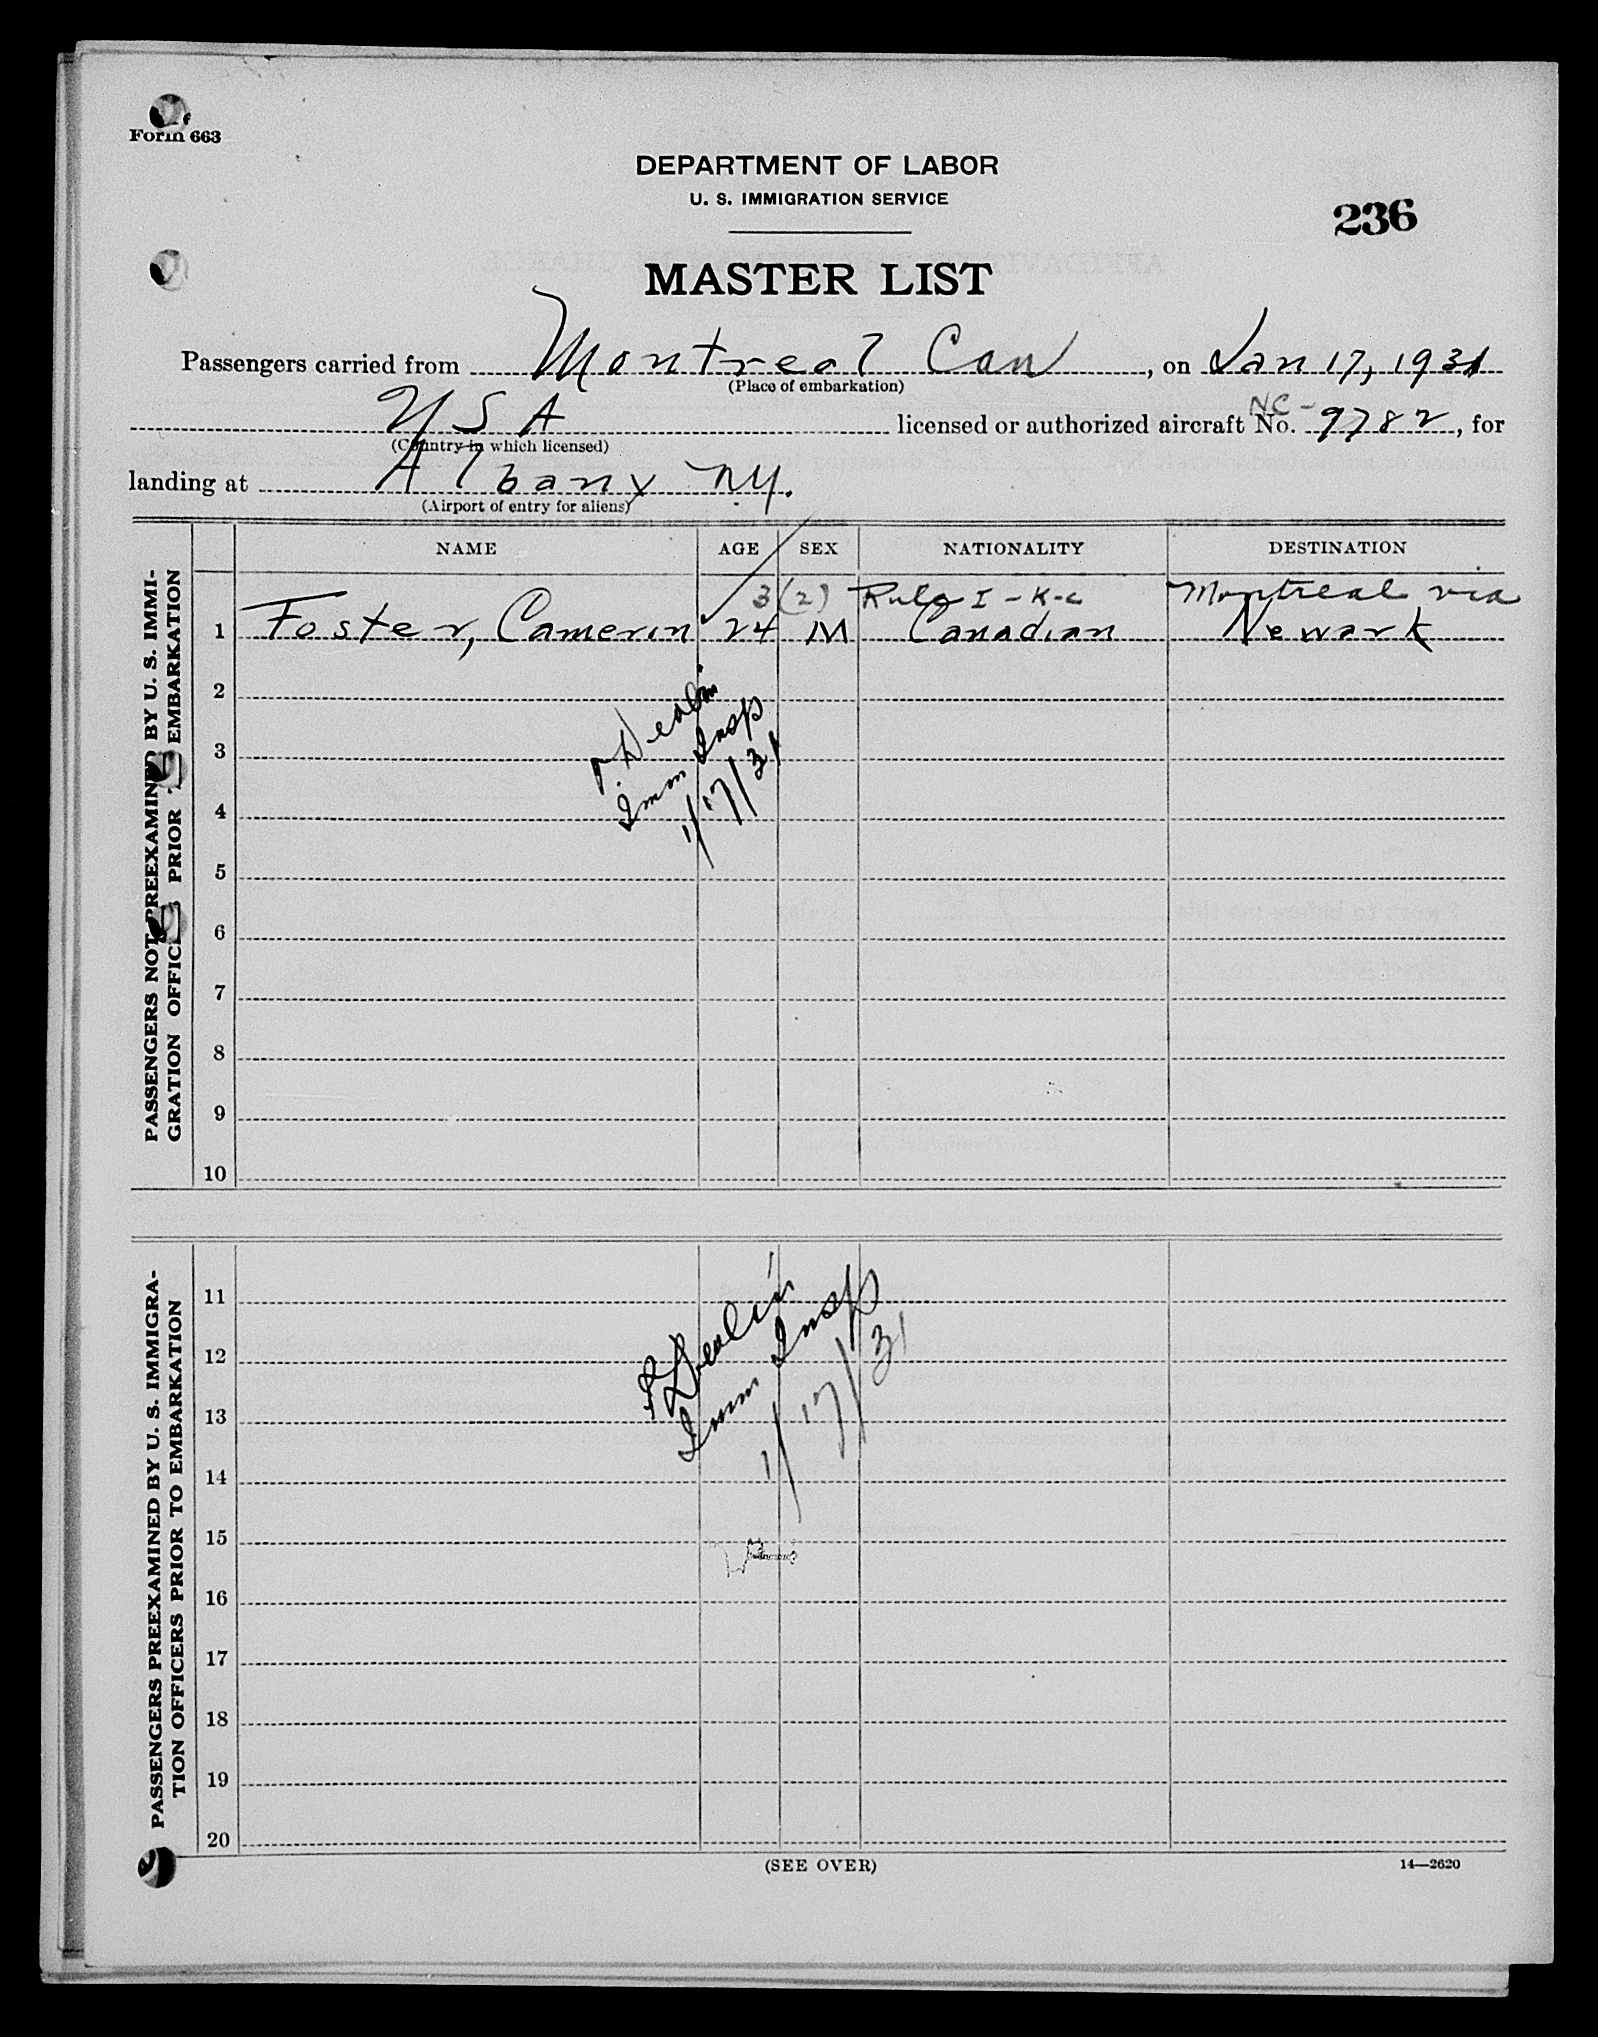 Form 663
DEPARTMENT OF LABOR
U. S. IMMIGRATION SERVICE
236
MASTER LIST
Passengers carried from Montreal Can, on Jan 17, 1931
(Place of embarkation)
U S A licensed or authorized aircraft No. NC-9782, for
(Country in which licensed)
landing at Albany NY.
(Airport of entry for aliens)
NAME AGE SEX NATIONALITY DESTINATION
3(2) Rule I-K-c Montreal via
1 Foster, Cameron 24 M Canadian Newark
2
3
4
5
6
7
8
9
10
Imm Insp
1/17/31
PASSENGERS NOT PREEXAMINED BY U. S. IMMI-
GRATION OFFICERS PRIOR TO EMBARKATION
11
12
13
14
15
16
17
18
19
20
Imm Insp
1/17/31
PASSENGERS PREEXAMINED BY U. S. IMMIGRA-
TION OFFICERS PRIOR TO EMBARKATION
(SEE OVER)
14—2620